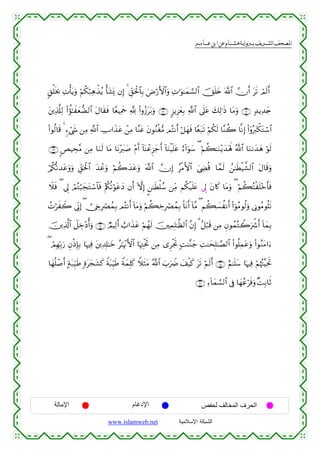 المصحف الشريف برواية هشام عن ابن عامر
أَلَمْ تَرَ أَنَّ ٱللَّهَ خَلَقَ ٱلسَّمَٰوَٰتِ وَٱلْأَرْضَ بِٱلْحَقِّ ۚ إِن يَشَأْ يُذْهِبْكُمْ وَيَأْتِ بِخَلْقٍ
جَدِيدٍ وَمَا ذَٰلِكَ عَلَى ٱللَّهِ بِعَزِيزٍ وَبَرَزُوا۟ لِلَّهِ جَمِيعًا فَقَالَ ٱلضُّعَفَٰٓؤُا۟ لِلَّذِينَ
ٱسْتَكْبَرُوٓا۟ إِنَّا كُنَّا لَكُمْ تَبَعًا فَهَلْ أَنتُم مُّغْنُونَ عَنَّا مِنْ عَذَابِ ٱللَّهِ مِن شَىْءٍ ۚ قَالُوا۟
لَوْ هَدَىٰنَا ٱللَّهُ لَهَدَيْنَٰكُمْ ۖ سَوَآءٌ عَلَيْنَآ أَجَزِعْنَآ أَمْ صَبَرْنَا مَا لَنَا مِن مَّحِيصٍ
وَقَالَ ٱلشَّيْطَٰنُ لَمَّا قُضِىَ ٱلْأَمْرُ إِنَّ ٱللَّهَ وَعَدَكُمْ وَعْدَ ٱلْحَقِّ وَوَعَدتُّكُمْ
فَأَخْلَفْتُكُمْ ۖ وَمَا كَانَ لِى عَلَيْكُم مِّن سُلْطَٰنٍ إِلَّآ أَن دَعَوْتُكُمْ فَٱسْتَجَبْتُمْ لِى ۖ فَلَا
تَلُومُونِى وَلُومُوٓا۟ أَنفُسَكُم ۖ مَّآ أَنَا۠ بِمُصْرِخِكُمْ وَمَآ أَنتُم بِمُصْرِخِىَّ ۖ إِنِّى كَفَرْتُ
بِمَآ أَشْرَكْتُمُونِ مِن قَبْلُ ۗ إِنَّ ٱلظَّٰلِمِينَ لَهُمْ عَذَابٌ أَلِيمٌ وَأُدْخِلَ ٱلَّذِينَ
ءَامَنُوا۟ وَعَمِلُوا۟ ٱلصَّٰلِحَٰتِ جَنَّٰتٍ تَجْرِى مِن تَحْتِهَا ٱلْأَنْهَٰرُ خَٰلِدِينَ فِيهَا بِإِذْنِ رَبِّهِمْ ۖ
تَحِيَّتُهُمْ فِيهَا سَلَٰمٌ أَلَمْ تَرَ كَيْفَ ضَرَبَ ٱللَّهُ مَثَلًا كَلِمَةً طَيِّبَةً كَشَجَرَةٍ طَيِّبَةٍ أَصْلُهَا
ثَابِتٌ وَفَرْعُهَا فِى ٱلسَّمَآءِ
الحرف المخالف لحفص الإدغام الإمالة
الشبكة الإسلامية www.islamweb.net